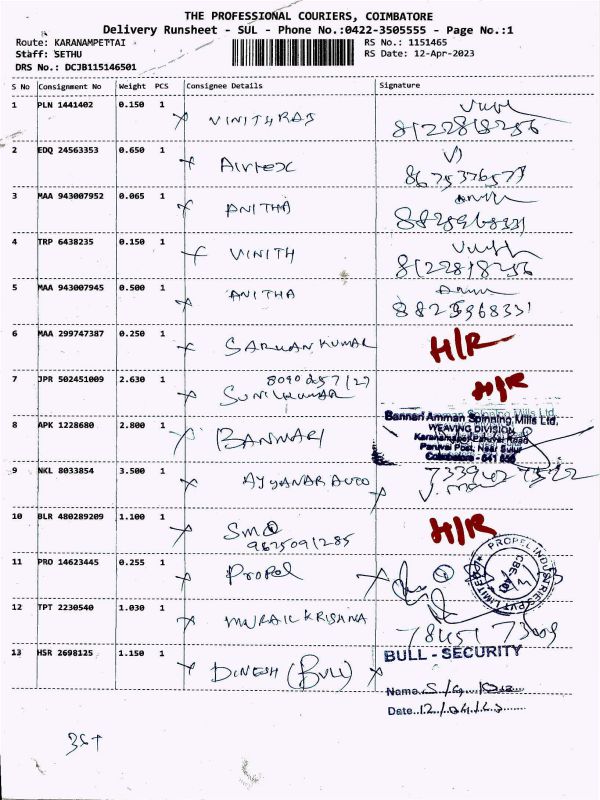 THE PROFESSIONAL COURIERS, COIMBATORE
Delivery Runsheet - SUL - Phone No.:0422-3505555 - Page No.:1
Route: KARANAMPETTAI RS No.: 1151465
Staff: SETHU RS Date: 12-Apr-2023
DRS No.: DCJB115146501
S No Consignment No Weight PCS Consignee Details Signature
1 PLN 1441402 0.150 1 VINITHRAJ
8122818256
2 EDQ 24563353 0.650 1 Airtex
3 MAA 943007952 0.065 1 ANITHA
4 TRP 6438235 0.150 1 VINITH
8122818256
5 MAA 943007945 0.500 1 ANITHA
6 MAA 299747387 0.250 1 SARUANKUMAR H/R
7 JPR 502451009 2.630 1 SUNILKUMAR H/R
8 APK 1228680 2.800 1 BANNARI
Bannari Amman Spinning Mills Ltd,
WEAVING DIVISION
Karanampet Paruvai Road
Paruvai Post, Near Sulur
Coimbatore - 641 658
9 NKL 8033854 3.500 1 AYYANAR AUTO
10 BLR 480289209 1.100 1 H/R
9675091285
11 PRO 14623445 0.255 1 Propel
PROPEL INDUSTRIES PVT LIMITED
12 TPT 2230540 1.030 1 MURALI KRISHNA
13 HSR 2698125 1.150 1 DINESH (BULL)
BULL - SECURITY
Name
Date